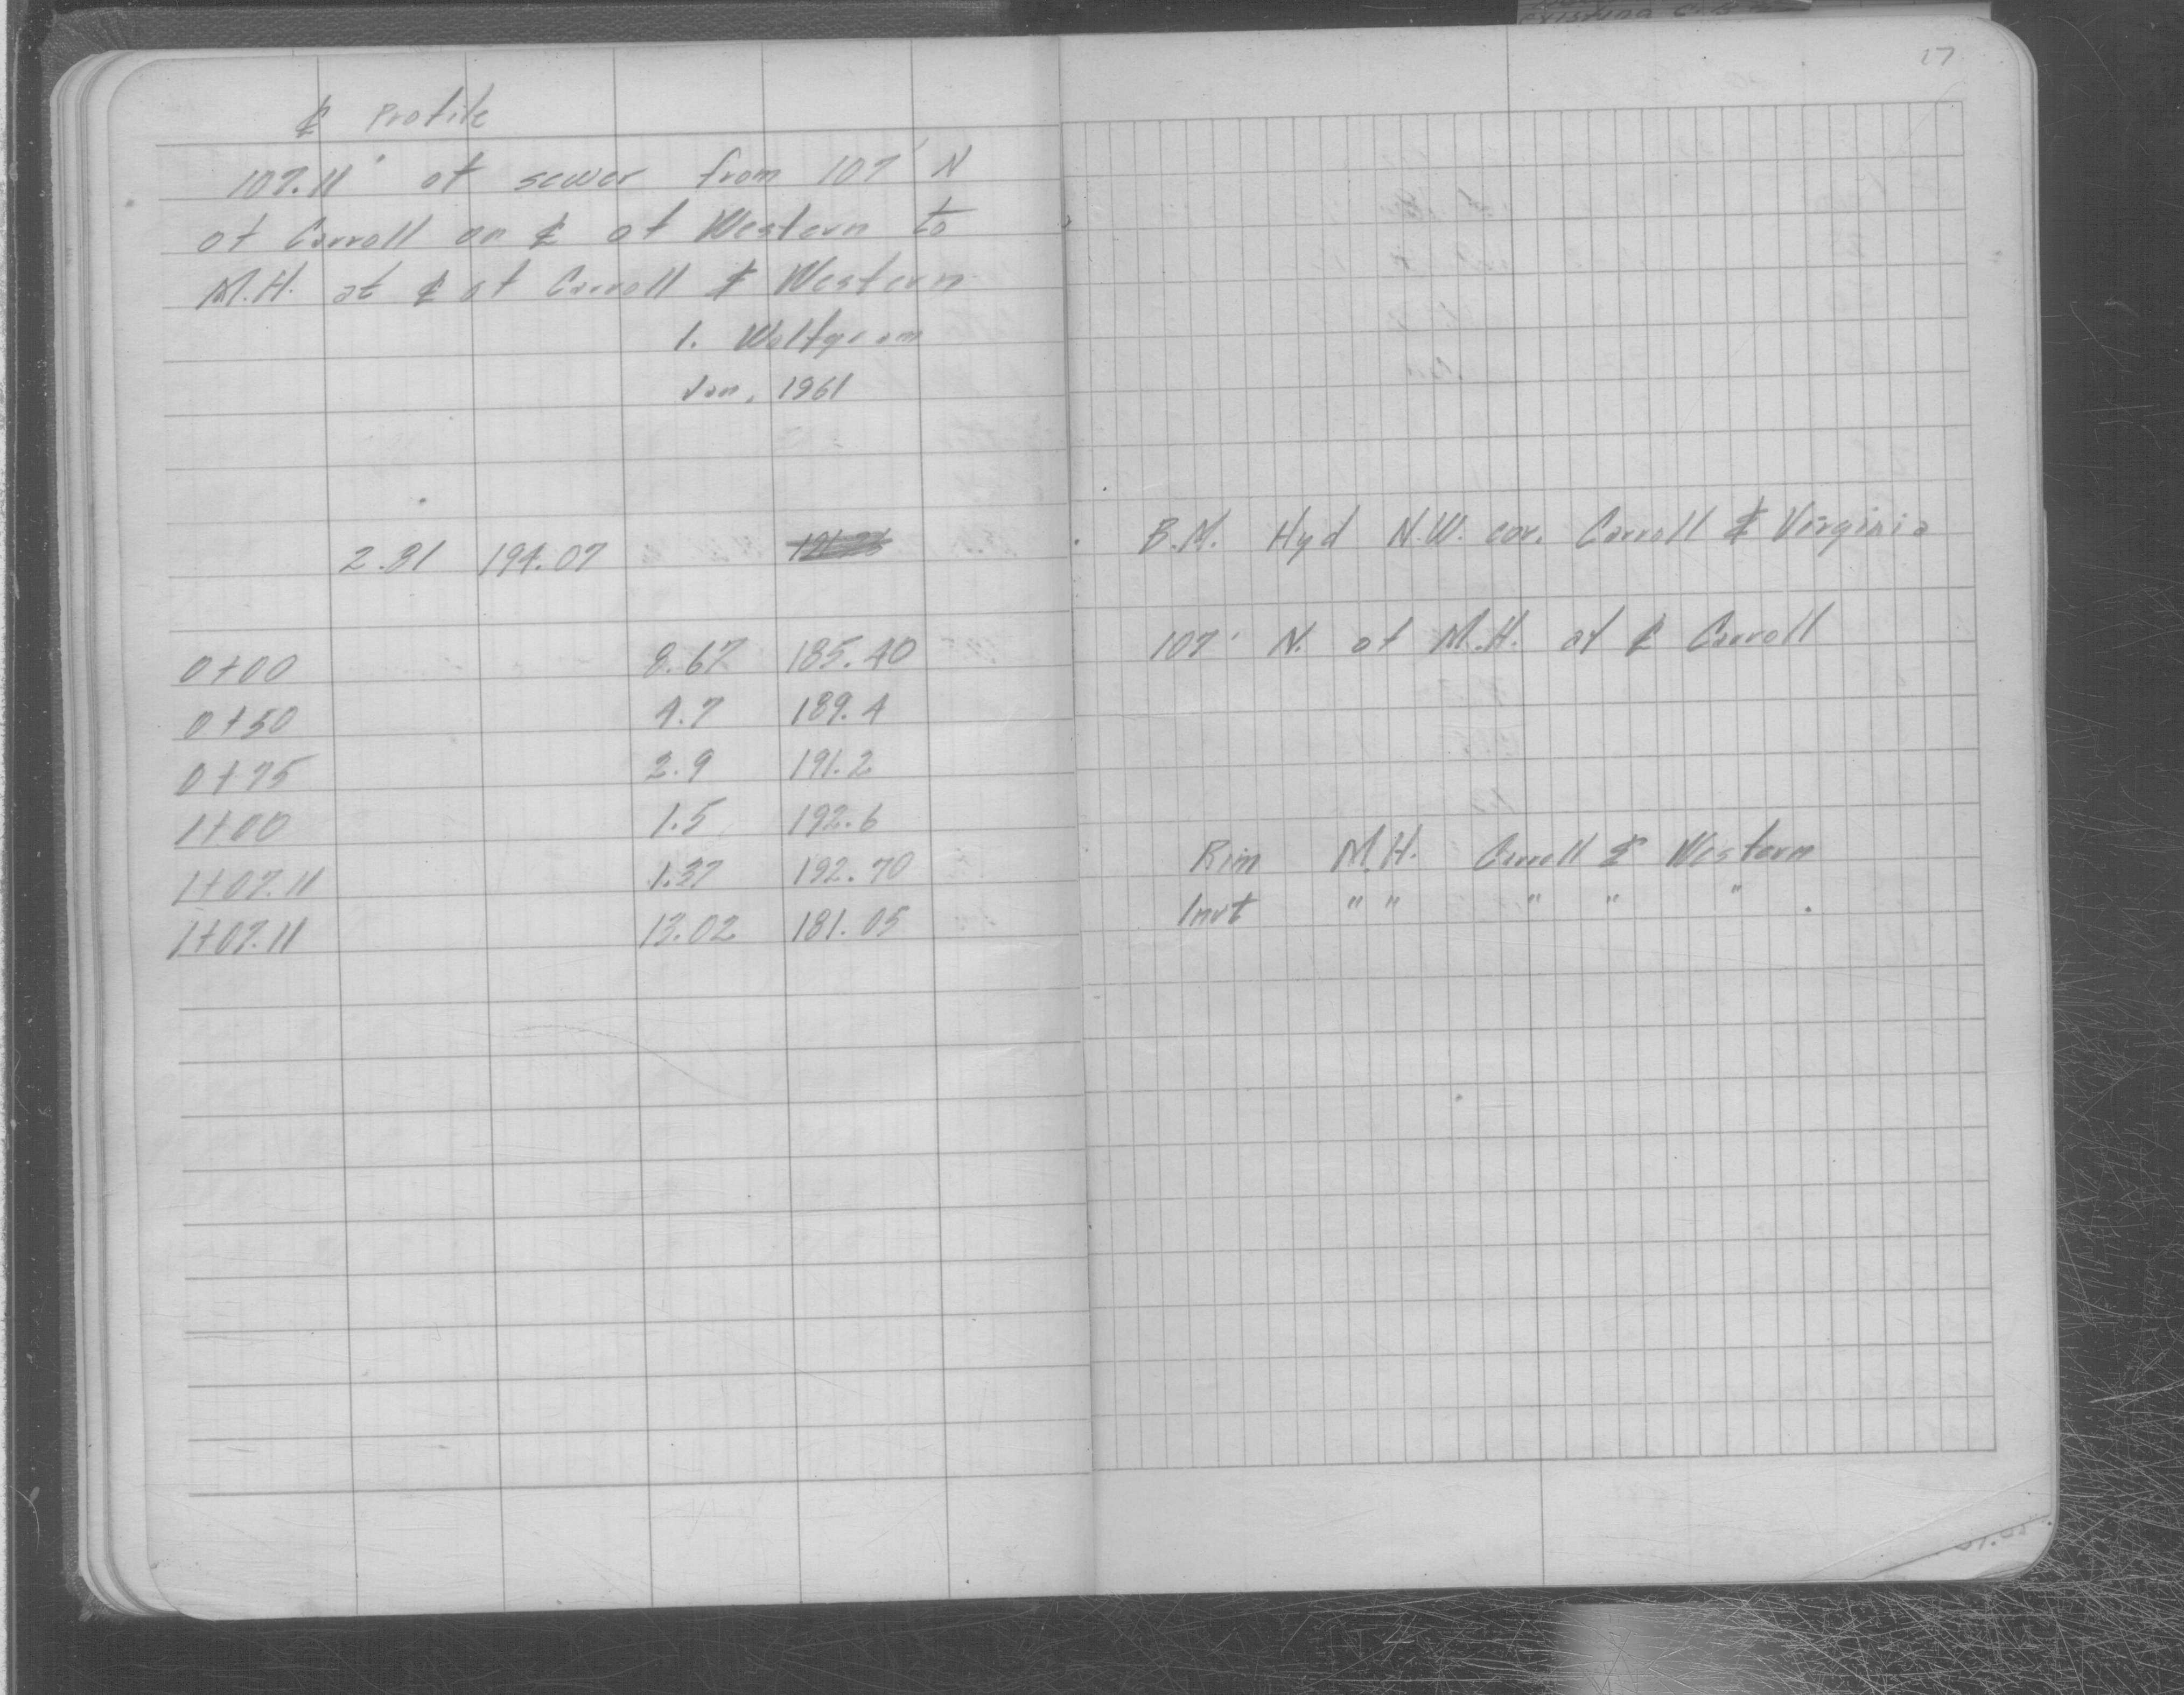 17
℄ Profile
107.11' of sewer from 107' N
of Carroll on ℄ of Western to
M.H. at ℄ of Carroll & Western
1. Wolfgram
Jan, 1961
2.81 194.07 B.M. Hyd N.W. cor. Carroll & Virginia
0+00 8.67 185.40 107' N. of M.H. at ℄ Carroll
0+50 4.7 189.4
0+75 2.9 191.2
1+00 1.5 192.6
1+07.11 1.37 192.70 Rim M.H. Carroll & Western
1+07.11 13.02 181.05 Invt " " " " "